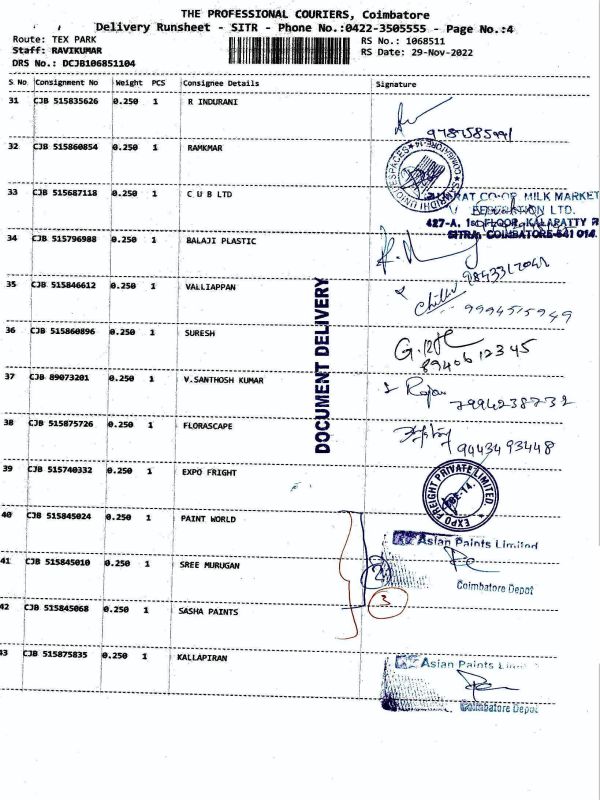 THE PROFESSIONAL COURIERS, Coimbatore
Delivery Runsheet - SITR - Phone No.:0422-3505555 - Page No.:4
Route: TEX PARK
RS No.: 1068511
Staff: RAVIKUMAR
RS Date: 29-Nov-2022
DRS No.: DCJB106851104
S No Consignment No Weight PCS Consignee Details Signature
31 CJB 515835626 0.250 1 R INDURANI
32 CJB 515860854 0.250 1 RAMKMAR
33 CJB 515687118 0.250 1 C U B LTD
CO-OP. MILK MARKET
LTD.
427-A, 1st FLOOR, KALAPATTY R
SITRA, COIMBATORE-641 014.
34 CJB 515796988 0.250 1 BALAJI PLASTIC
35 CJB 515846612 0.250 1 VALLIAPPAN
9994515949
36 CJB 515860896 0.250 1 SURESH
8940612345
37 CJB 89073201 0.250 1 V.SANTHOSH KUMAR
Rajan
7994238732
38 CJB 515875726 0.250 1 FLORASCAPE
9443493448
39 CJB 515740332 0.250 1 EXPO FRIGHT
EXPO FREIGHT PRIVATE LIMITED
40 CJB 515845024 0.250 1 PAINT WORLD
Asian Paints Limited
41 CJB 515845010 0.250 1 SREE MURUGAN
2
Coimbatore Depot
42 CJB 515845068 0.250 1 SASHA PAINTS
3
43 CJB 515875835 0.250 1 KALLAPIRAN
Asian Paints
Coimbatore Depot
DOCUMENT DELIVERY